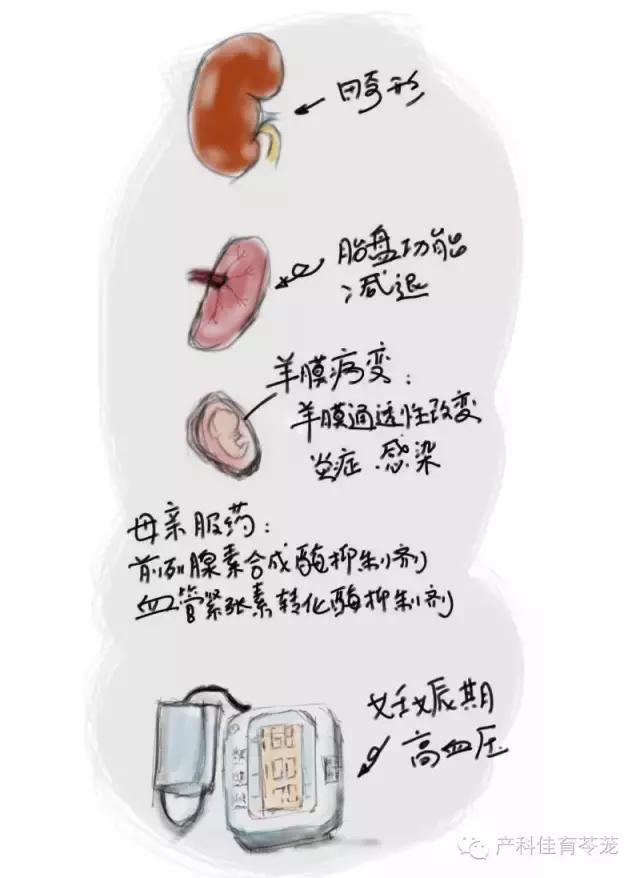 畸形
胎盘功能
减退
羊膜病变：
羊膜通透性改变
炎症 感染
母亲服药：
前列腺素合成酶抑制剂
血管紧张素转化酶抑制剂
妊娠期
高血压
168
100
70
产科佳育苓茏